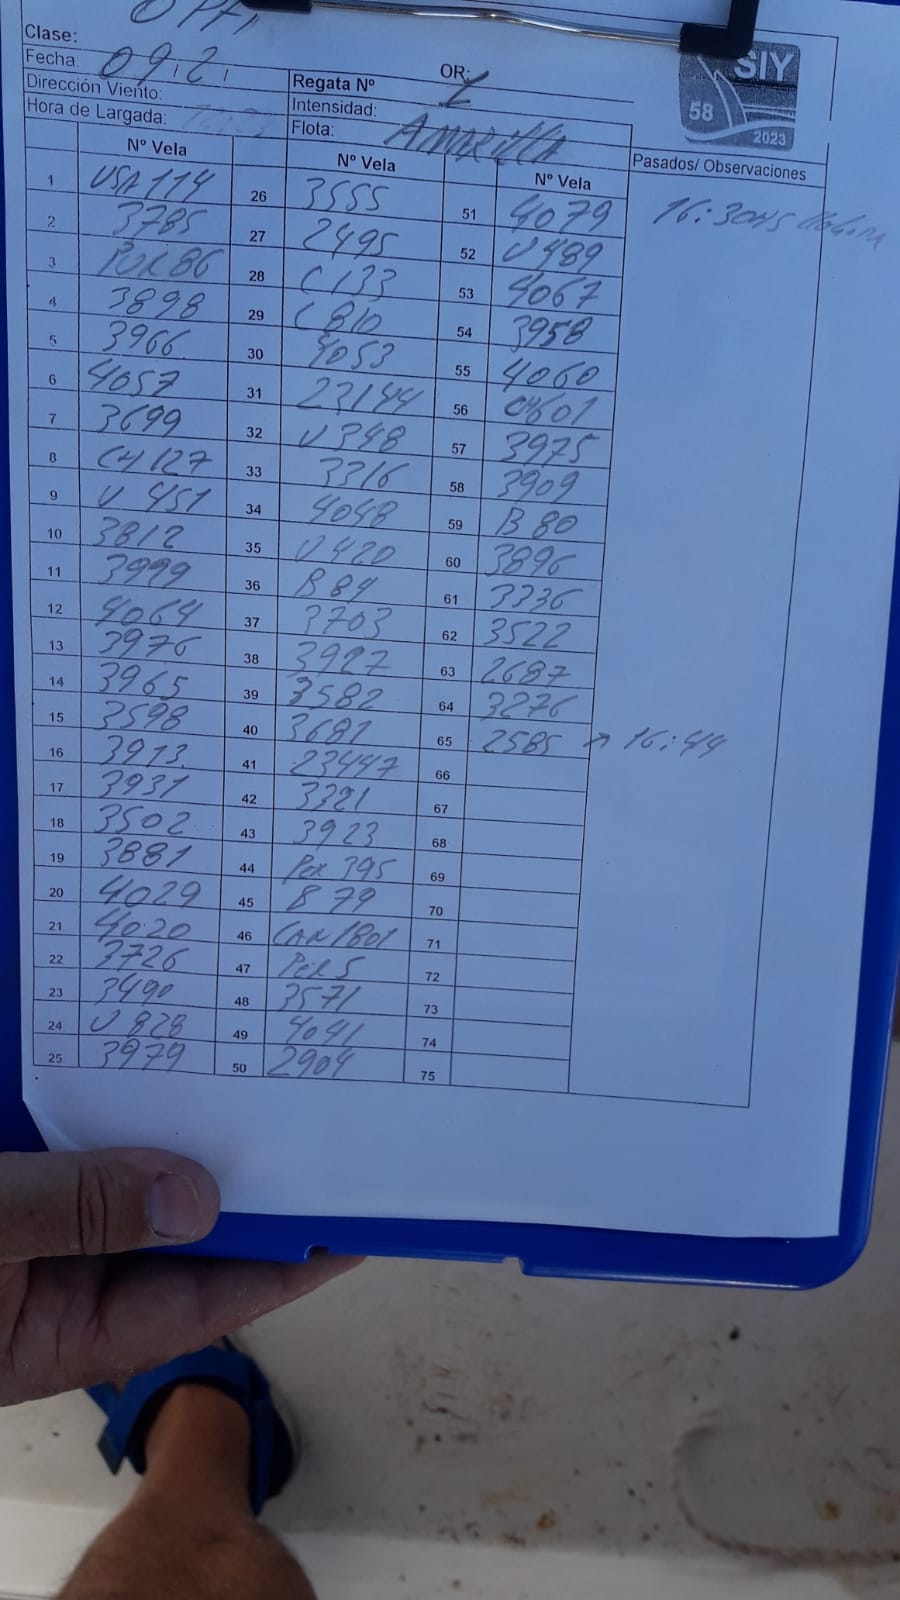 Clase: OPTI
Fecha: 09.2.
OR:
Dirección Viento:
Regata Nº
Intensidad:
Hora de Largada:
Flota: AMARILLA
SIY
58
2023
Nº Vela Nº Vela Nº Vela Pasados/ Observaciones
1 USA 114 26 3555 51 4079 16:30
2 3785 27 2495 52 U 489
3 PUR 86 28 C 133 53 4067
4 3898 29 C 810 54 3958
5 3966 30 4053 55 4060
6 4057 31 23144 56 601
7 3699 32 U 348 57 3975
8 CH 127 33 3316 58 3909
9 U 451 34 4048 59 B 80
10 3812 35 U 420 60 3896
11 3999 36 B 84 61 3336
12 4064 37 3703 62 3522
13 3976 38 3927 63 2687
14 3965 39 3582 64 3276
15 3598 40 3681 65 2585 → 16:44
16 3913. 41 23447 66
17 3931 42 3321 67
18 3502 43 3923 68
19 3881 44 PER 395 69
20 4029 45 B 79 70
21 4020 46 CAN 1801 71
22 3726 47 PER 5 72
23 3490 48 3571 73
24 U 828 49 4041 74
25 3979 50 2904 75